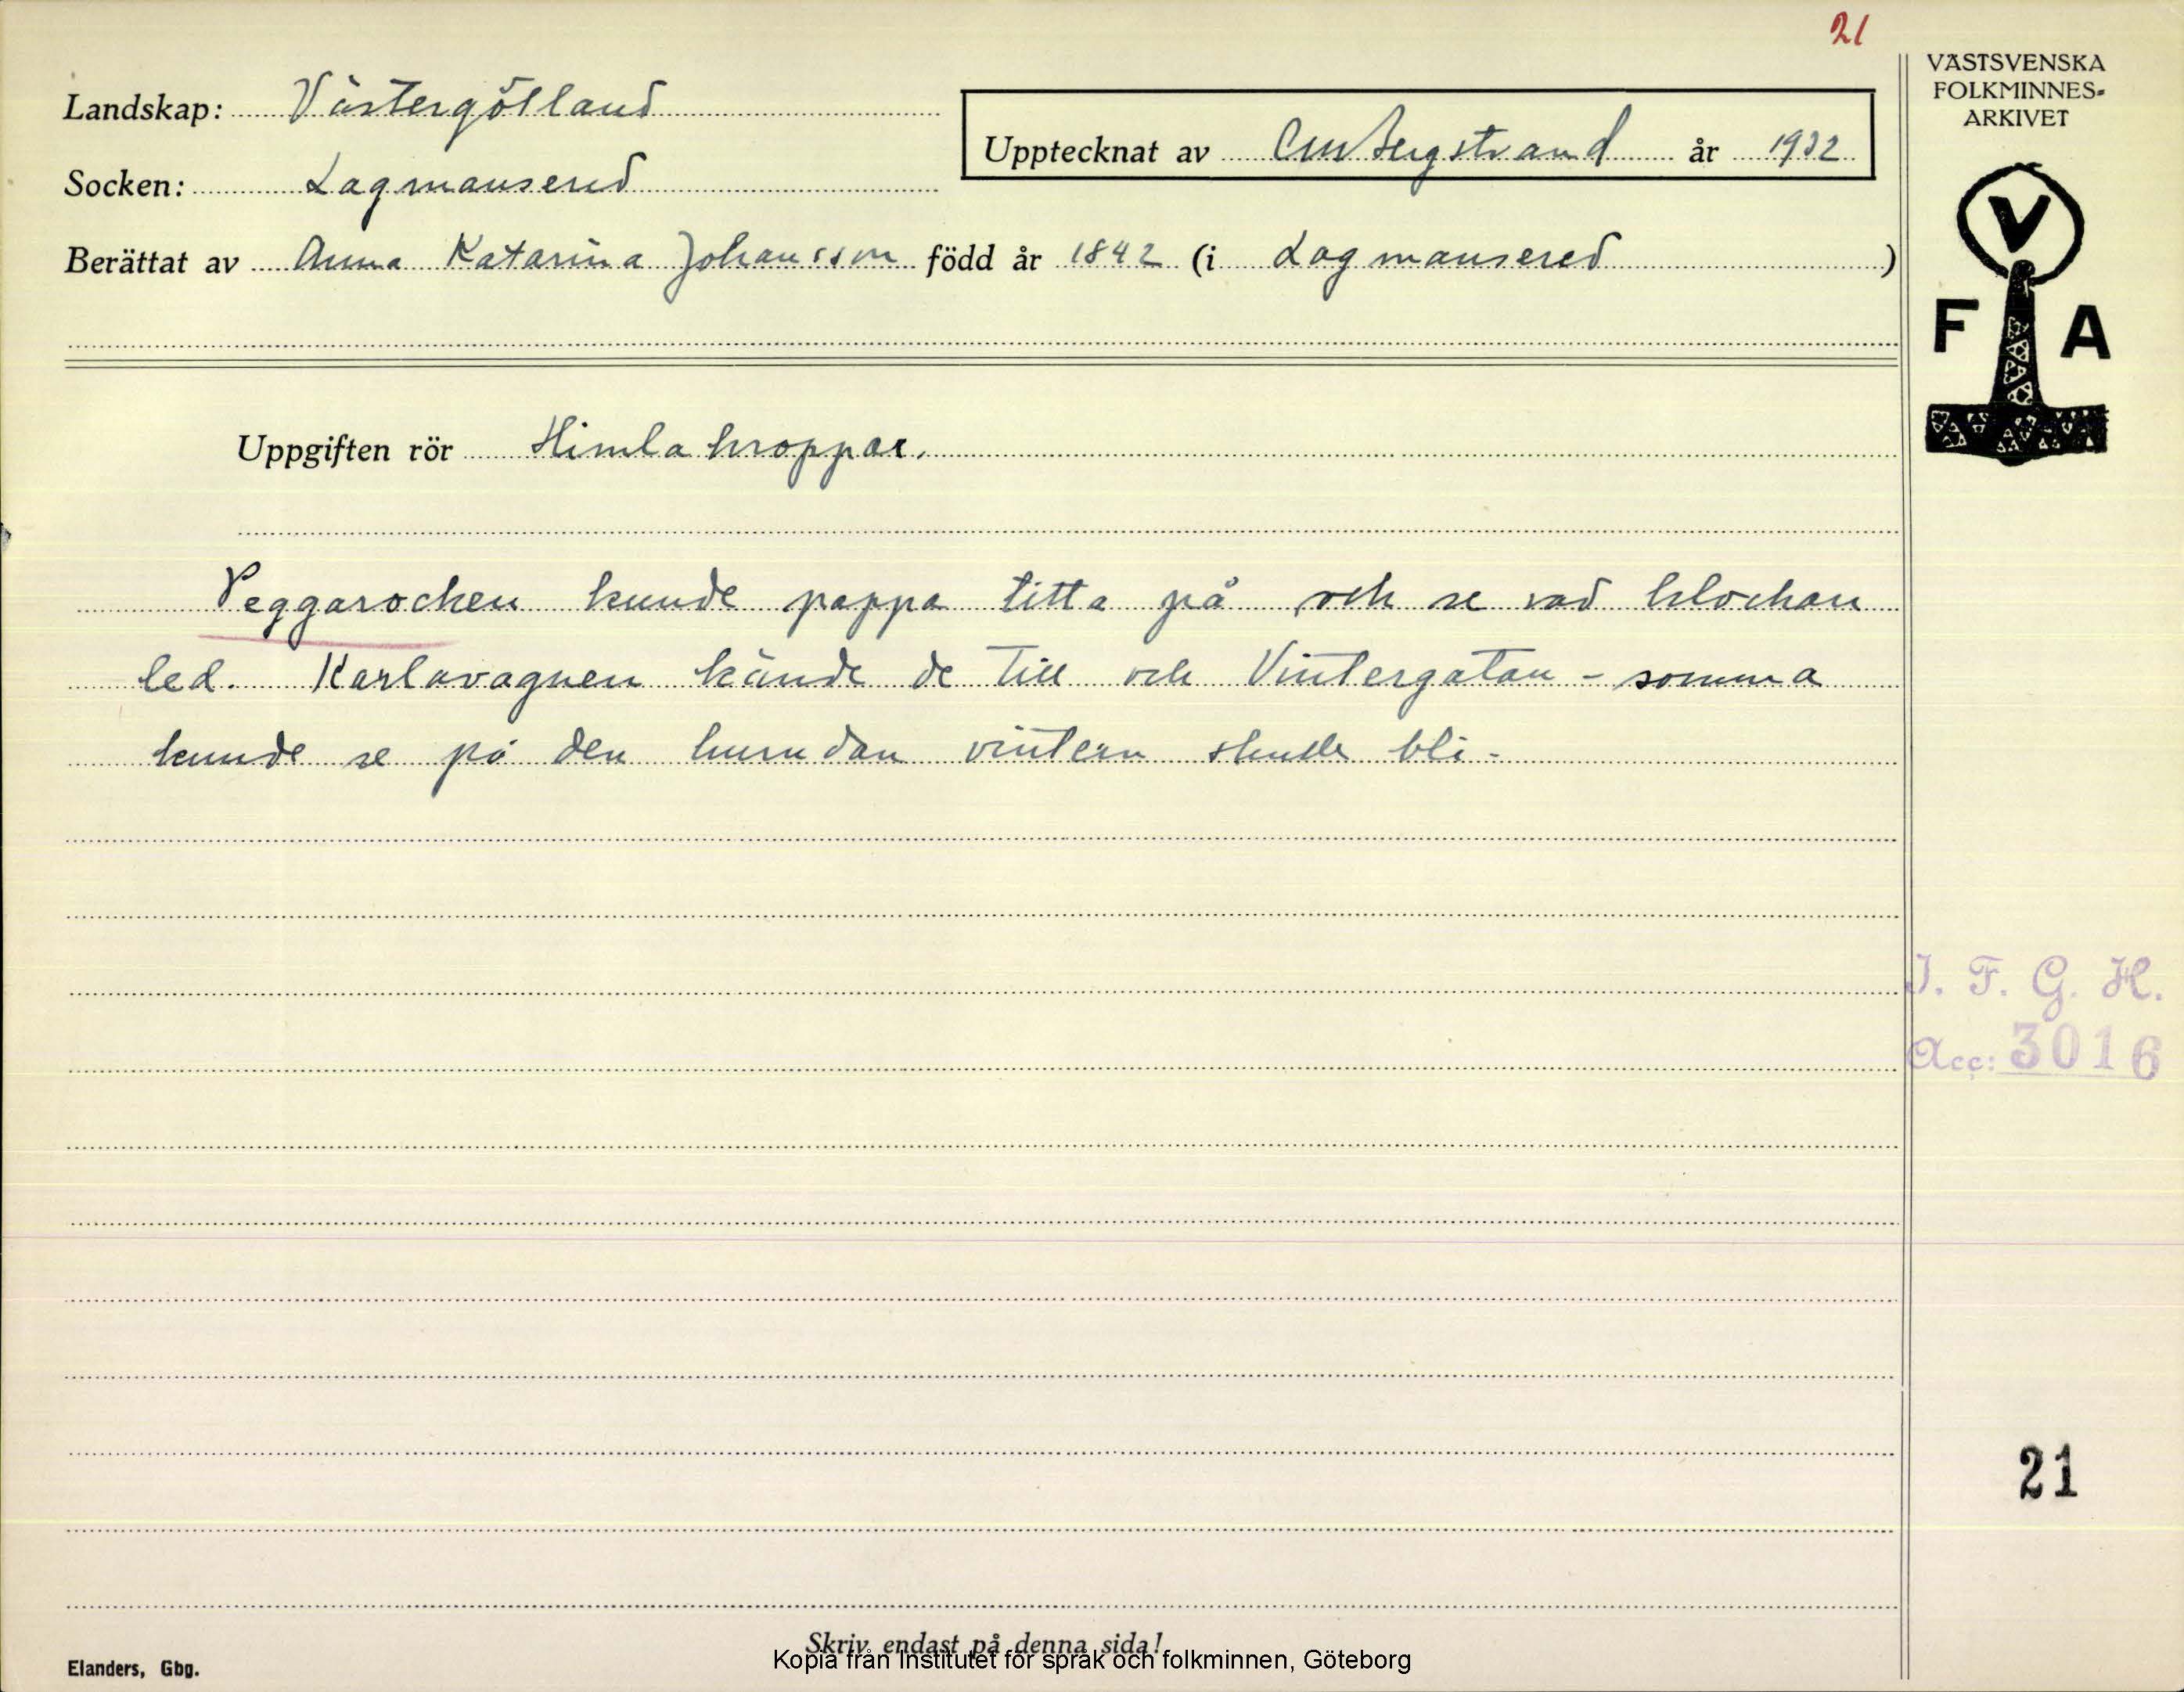 21
VÄSTSVENSKA
FOLKMINNES-
ARKIVET
Landskap: Västergötland
Upptecknat av CM Bergstrand år 1932
Socken: Lagmansered
Berättat av Anna Katarina Johansson född år 1842 (i Lagmansered)
V
F A
Uppgiften rör Himlakroppar.
Peggarocken kunde pappa titta på och se vad klockan
led. Karlavagnen kände de till och Vintergatan - somma
kunde se på den hurudan vintern skulle bli -
I. F. G. H.
Acc: 3016
21
Skriv endast på denna sida!
Kopia från Institutet för språk och folkminnen, Göteborg
Elanders, Gbg.